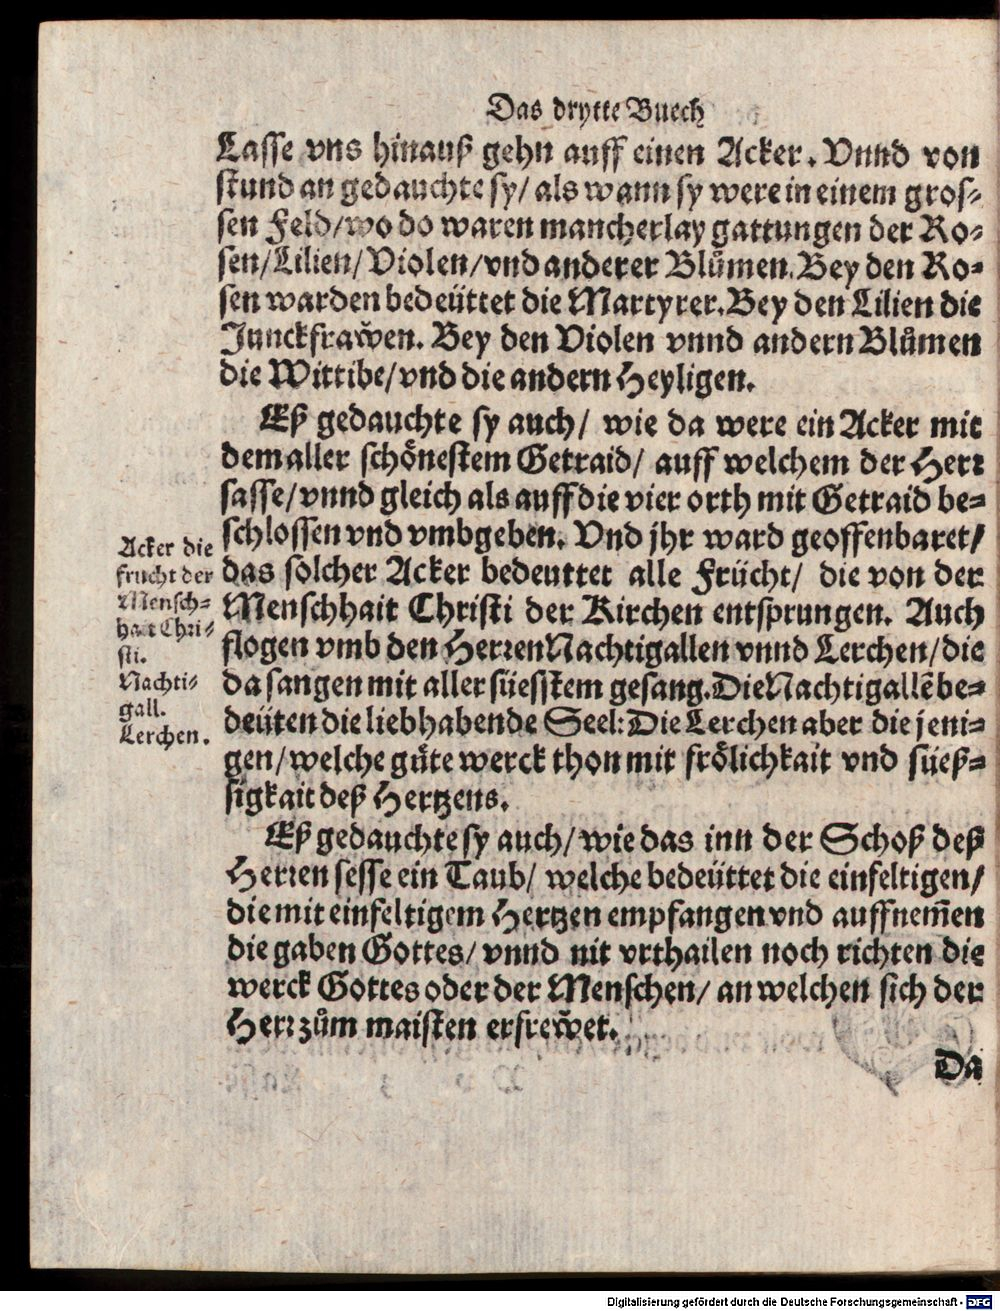 Das drytte Buech
Lasse vns hinauß gehn auff einen Acker. Vnnd von
stund an gedauchte sy/ als wann sy were in einem gros-
sen Feld/wo do waren mancherlay gattungen der Ro-
sen/Lilien/Violen/vnd anderer Blůmen. Bey den Ro-
sen warden bedeüttet die Martyrer. Bey den Lilien die
Junckfraw̌en. Bey den Violen vnnd andern Blůmen
die Wittibe/vnd die andern Heyligen.
Eß gedauchte sy auch/ wie da were ein Acker mit
dem aller schönestem Getraid/ auff welchem der Herr
sasse/vnnd gleich als auff die vier orth mit Getraid be-
schlossen vnd vmbgeben. Vnd jhr ward geoffenbaret/
das solcher Acker bedeuttet alle Frücht/ die von der
Menschhait Christi der Kirchen entsprungen. Auch
flogen vmb den Herren Nachtigallen vnnd Lerchen/die
da sangen mit aller süesstem gesang. Die Nachtigallē be-
deüten die liebhabende Seel: Die Lerchen aber die jeni-
gen/welche gůte werck thon mit frölichkait vnd süeß-
sigkait deß Hertzens.
Acker die
frucht der
Mensch-
hait Chri-
sti.
Nachti-
gall.
Lerchen.
Eß gedauchte sy auch/wie das inn der Schoß deß
Herren sesse ein Taub/ welche bedeüttet die einfeltigen/
die mit einfeltigem Hertzen empfangen vnd auffnem̃en
die gaben Gottes/ vnnd nit vrthailen noch richten die
werck Gottes oder der Menschen/ an welchen sich der
Herr zům maisten erfrew̌et.
Da
Digitalisierung gefördert durch die Deutsche Forschungsgemeinschaft - DFG